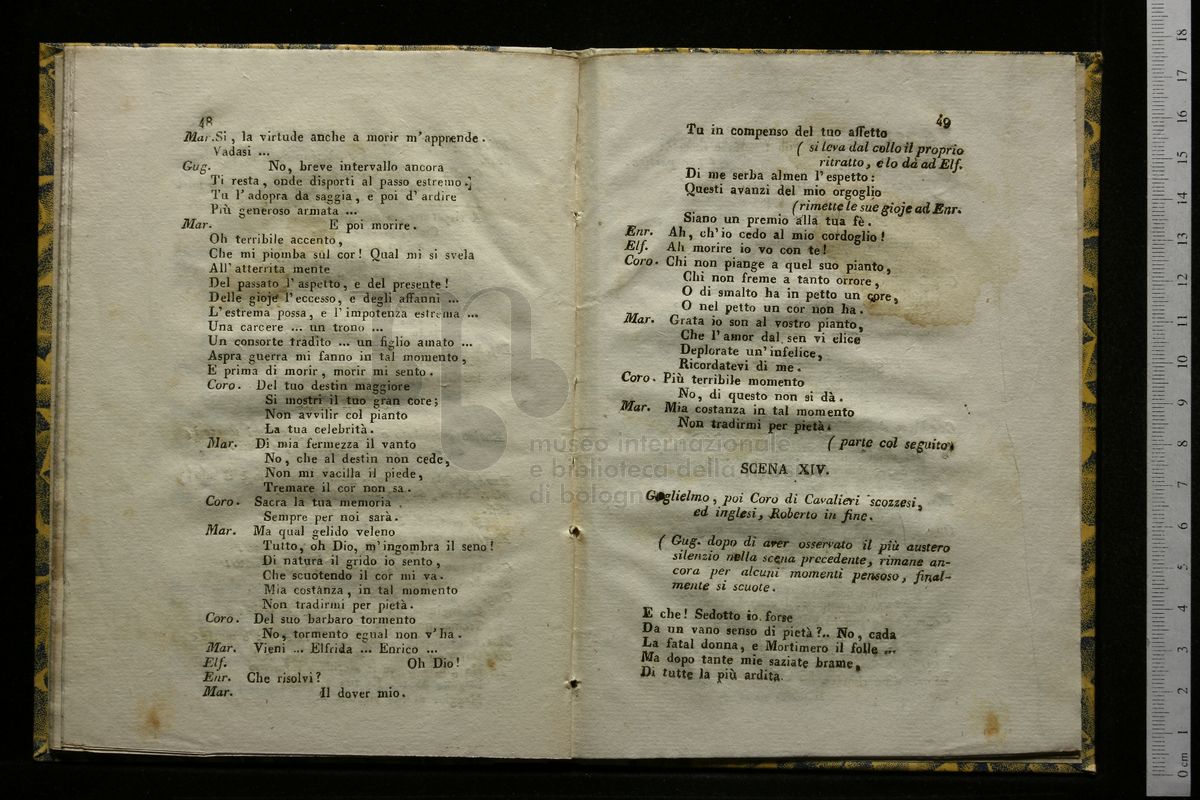 48
Mar. Si, la virtude anche a morir m'apprende.
Vadasi ...
Gug. No, breve intervallo ancora
Ti resta, onde disporti al passo estremo.
Tu l'adopra da saggia, e poi d'ardire
Più generoso armata ...
Mar. E poi morire.
Oh terribile accento,
Che mi piomba sul cor! Qual mi si svela
All'atterrita mente
Del passato l'aspetto, e del presente!
Delle gioje l'eccesso, e degli affanni ...
L'estrema possa, e l'impotenza estrema ...
Una carcere ... un trono ...
Un consorte tradito ... un figlio amato ...
Aspra guerra mi fanno in tal momento,
E prima di morir, morir mi sento.
Coro. Del tuo destin maggiore
Si mostri il tuo gran core;
Non avvilir col pianto
La tua celebrità.
Mar. Di mia fermezza il vanto
No, che al destin non cede,
Non mi vacilla il piede,
Tremare il cor non sa.
Coro. Sacra la tua memoria
Sempre per noi sarà.
Mar. Ma qual gelido veleno
Tutto, oh Dio, m'ingombra il seno!
Di natura il grido io sento,
Che scuotendo il cor mi va.
Mia costanza, in tal momento
Non tradirmi per pietà.
Coro. Del suo barbaro tormento
No, tormento egual non v'ha.
Mar. Vieni ... Elfrida ... Enrico ...
Elf. Oh Dio!
Enr. Che risolvi?
Mar. Il dover mio.
49
Tu in compenso del tuo affetto
( si leva dal collo il proprio
ritratto, e lo dà ad Elf.
Di me serba almen l'espetto:
Questi avanzi del mio orgoglio
(rimette le sue gioje ad Enr.
Siano un premio alla tua fè.
Enr. Ah, ch'io cedo al mio cordoglio!
Elf. Ah morire io vo con te!
Coro. Chi non piange a quel suo pianto,
Chi non freme a tanto orrore,
O di smalto ha in petto un core,
O nel petto un cor non ha.
Mar. Grata io son al vostro pianto,
Che l'amor dal sen vi elice
Deplorate un'infelice,
Ricordatevi di me.
Coro. Più terribile momento
No, di questo non si dà.
Mar. Mia costanza in tal momento
Non tradirmi per pietà.
( parte col seguito.
SCENA XIV.
Guglielmo, poi Coro di Cavalieri scozzesi,
ed inglesi, Roberto in fine.
( Gug. dopo di aver osservato il più austero
silenzio nella scena precedente, rimane an-
cora per alcuni momenti pensoso, final-
mente si scuote.
E che! Sedotto io forse
Da un vano senso di pietà?.. No, cada
La fatal donna, e Mortimero il folle ...
Ma dopo tante mie saziate brame,
Di tutte la più ardita
museo internazionale
e biblioteca della
di bologna
0 cm 1 2 3 4 5 6 7 8 9 10 11 12 13 14 15 16 17 18